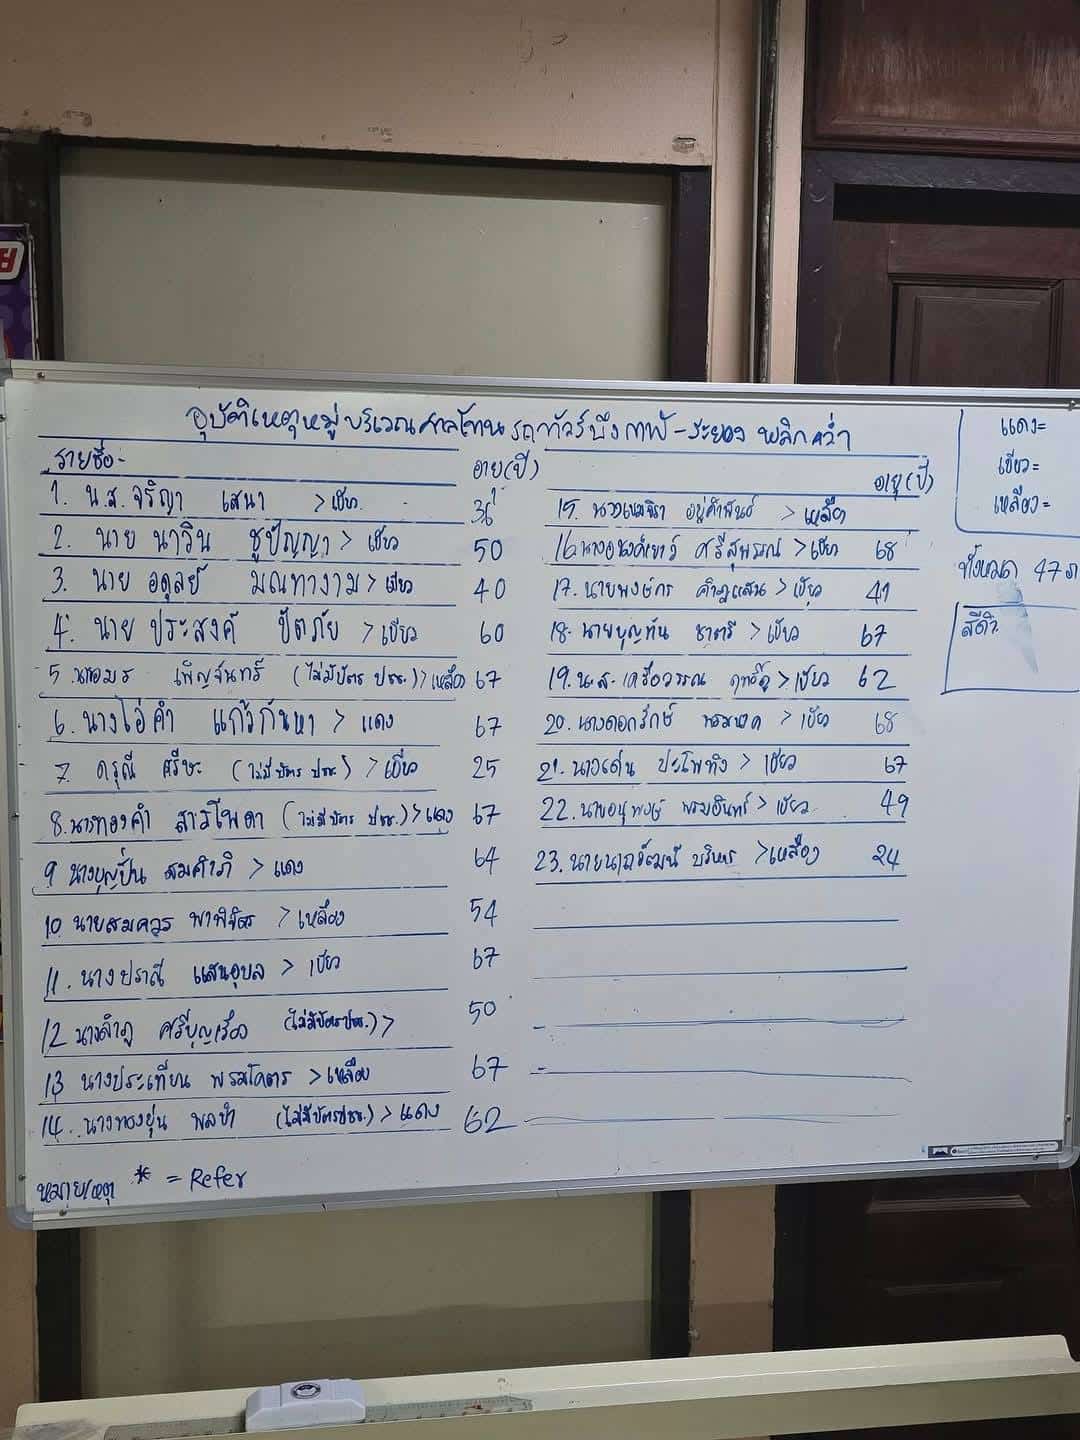 อุบัติเหตุหมู่บริเวณศาลโทน รถทัวร์บึงกาฬ - ระยอง พลิกคว่ำ
รายชื่อ -
อายุ (ปี)
1. น.ส. จริญา เสนา > เขียว 36
2. นาย นาวิน ชูปัญญา > เขียว 50
3. นาย อดุลย์ มณฑางาม > เขียว 40
4. นาย ประสงค์ ปัตภัย > เขียว 60
5. เพ็ญจันทร์ (ไม่มีบัตร ปชช.) > เหลือง 67
6. นางไอ่คำ แก้วกันหา > แดง 67
7. ดรุณี ศรีษะ (ไม่มีบัตร ปชช.) > เขียว 25
8. นางทองคำ สารโพคา (ไม่มีบัตร ปชช.) > แดง 67
9 นางบุญปั่น > แดง 64
10. นายสมควร > เหลือง 54
11. นางปราณี แสนอุบล > เขียว 67
12 นางลำภู ศรีบุญเรือง (ไม่มีบัตรปชช.) > 50
13 นางประเทียน พรมโคตร > เหลือง 67
14. นางทองยุ่น (ไม่มีบัตรปชช.) > แดง 62
หมายเหตุ * = Refer
อายุ (ปี)
15. > เหลือง
16 ศรีสุพรรณ > เขียว 68
17. นายพงษ์กร > เขียว 41
18. นายบุญทัน ชาตรี > เขียว 67
19. น.ส. เครือวรรณ > เขียว 62
20. นางดอกรักษ์ > เขียว 68
21. นางเด่น ปะโพทิง > เขียว 67
22. นายอนุพงษ์ พรมอินทร์ > เขียว 49
23. นายนาถวัฒน์ บริหาร > เหลือง 24
แดง =
เขียว =
เหลือง =
ทั้งหมด 47